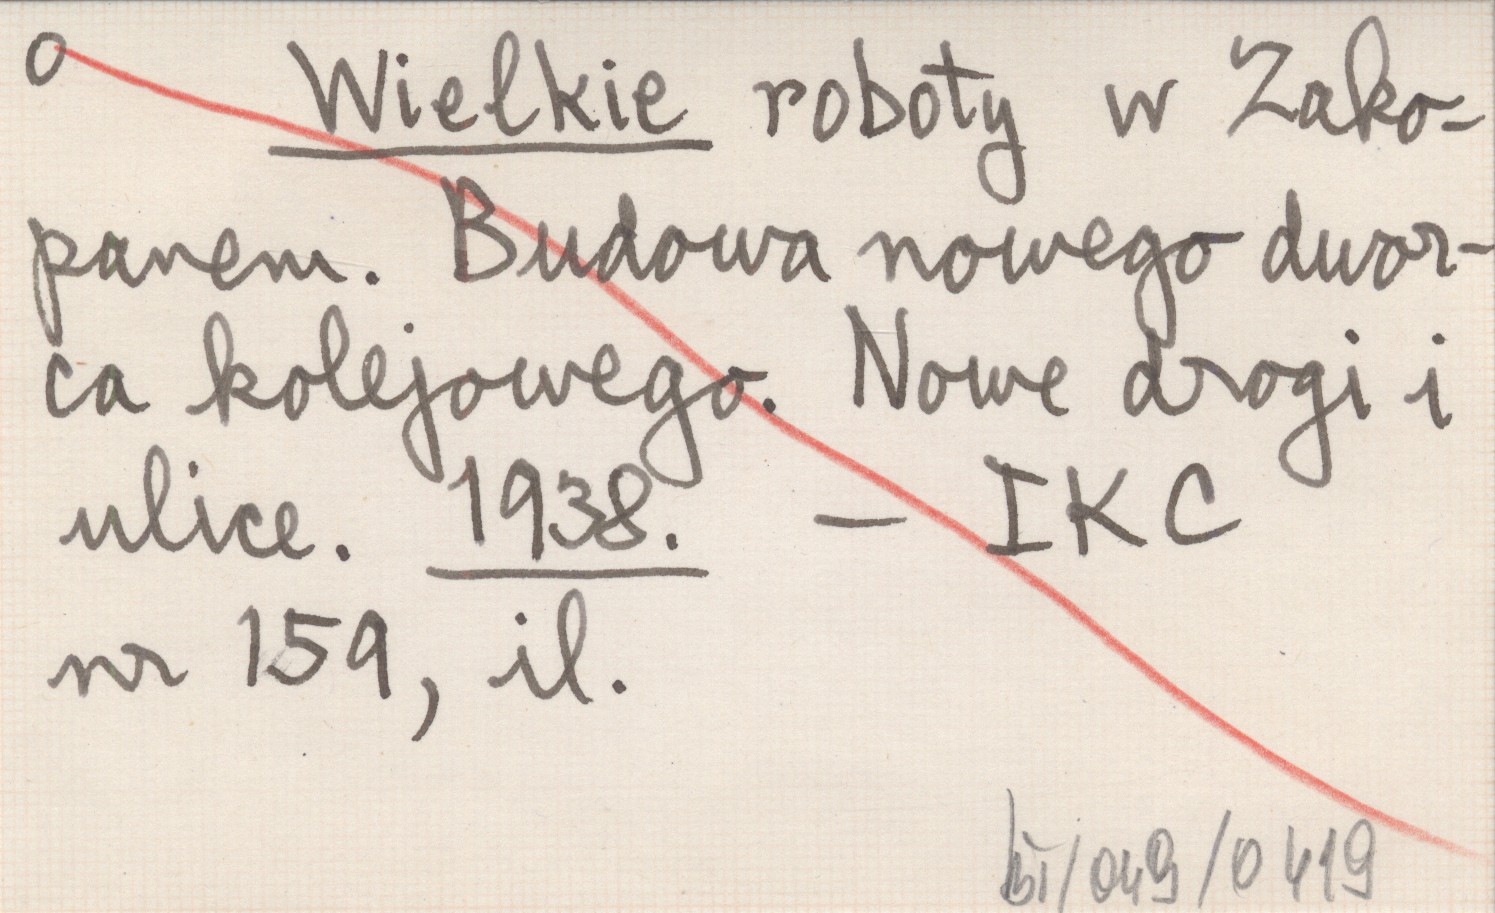 o Wielkie roboty w Zako-
panem. Budowa nowego dwor-
ca kolejowego. Nowe drogi i
ulice. 1938. — IKC
nr 159, il.
/049/0419